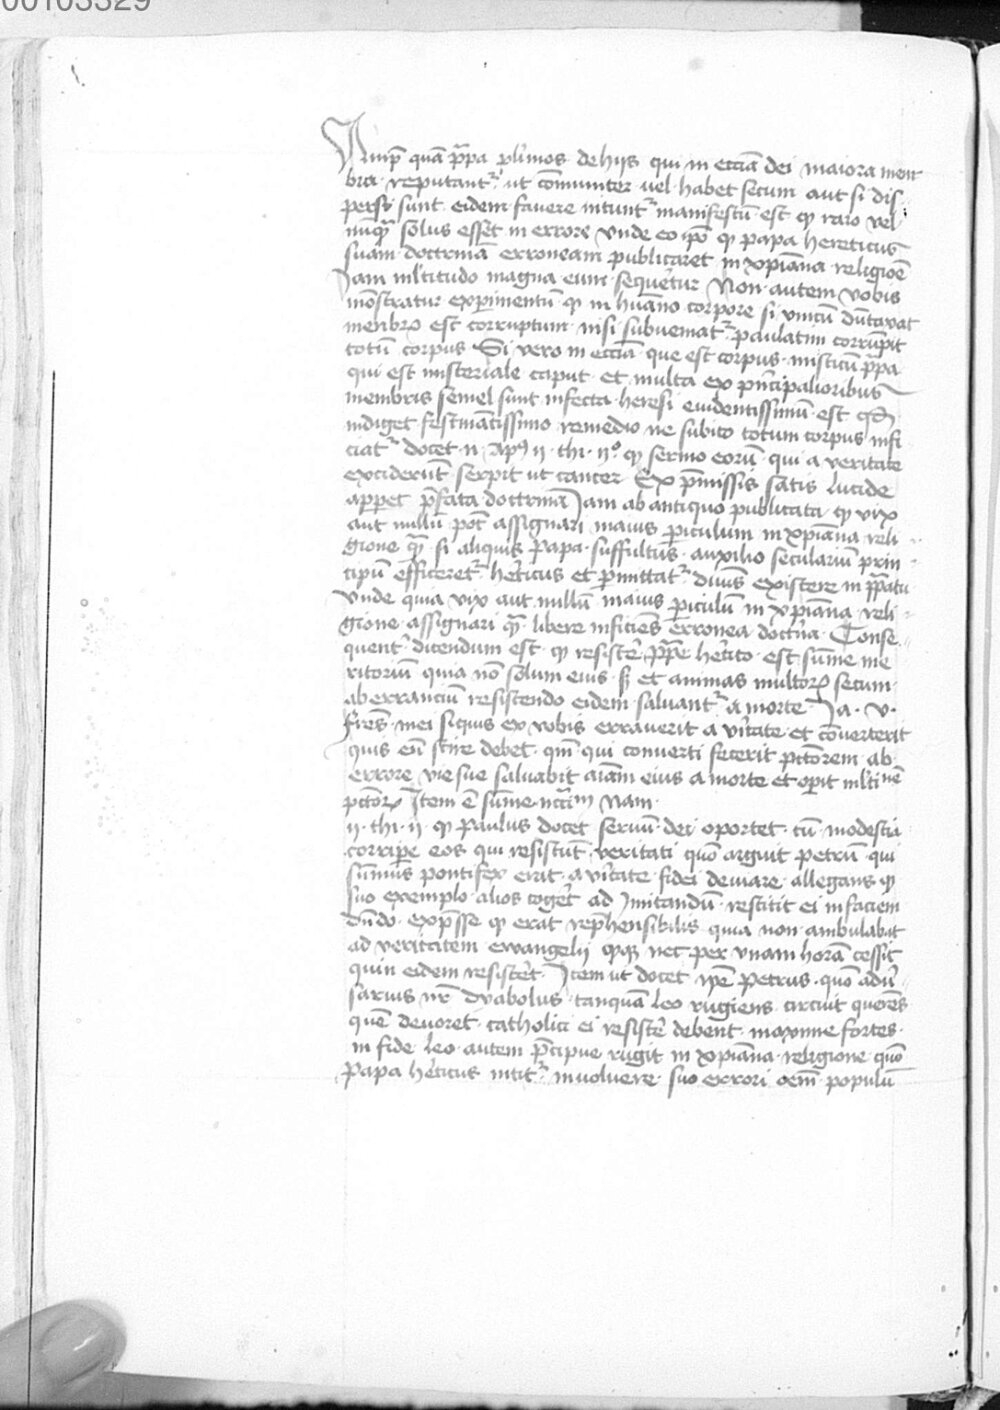 00103329
quã p̃pa plimos de hijs qui in ecc̃ia dei maiora mem
bra reputant᷑ ut cõmuniter uel habet secum aut si dis
persi sunt eidem favere intunt᷑ manifestũ est ꝙ raro vel
nuqᷓ solus esset in errore vnde eo ip̃o ꝙ papa hereticus
suam doctrinã erroneam publicaret in xp̃iana religiõe
Jam ml̃titudo magna eum sequeretur Non autem vobis
mõstratur experimentũ ꝙ in hũano corpore si vnicũ dũtaxat
menbrꝫ est corruptum nisi subueniat᷑ paulatim corrũpit
totũ corpus Si vero in ecc̃ia que est corpus misticũ p̃pa
qui est misteriale caput et multa ex p̃ncipalioribus
membris semel sunt infecta heresi euidentissimũ est qd̃
indiget festinãtissimo remedio ne subito totum corpus infi
ciat᷑ docet n̄ Ap̃s ij thi ij° ꝙ sermo eorũ qui a veritate
exciderũt serpit ut cancer Ex p̃missis satis lucide
apparet p̃fata doctrinã Jam ab antiquo publicata ꝙ vix
aut nullũ pot̃ assignari maius periculum in xp̃iana reli
gione qᷓ si aliquis papa suffultus auxilio seculariũ prin
cipũ efficeret᷑ het̃icus et p̃mittat᷑ diuti᷑ existere in p̃patu
vnde quia vix aut nullũ maius periculũ in xp̃iana reli
gione assignari qᷓ libere inficiẽs erronea doctr̃ia Conse
quent᷑ dicendum est ꝙ resister̃ p̃pe het̃ico est sum̃e me
ritoriũ quia nõ solum eius sꝫ et animas multoꝝ secum
aberrancium resistendo eidem saluant᷑ a morte Ja. v.
fr̃es mei siquis ex vobis erraverit a v̾itate et cõverterit
quis eũ scire debet qm̃ qui converti fecerit pct̃orem ab
errore vie sue saluabit aĩam eius a morte et op̃it ml̃tinẽ
pct̃oꝝ Item ẽ sum̃e nc̃c̃ariũ Nam
ij thi ij ꝙ paulus docet seruũ dei oportet cũ modestia
corriper̃ eos qui resistũt veritati quõ arguit petrũ qui
sum̃us pontifex erat a v̾itate fidei deuiare allegans ꝙ
suo exemplo alios coger̃ ad Imitandũ restitit ei in faciem
dñdo exp̃sse ꝙ erat rep̃hensibilis quia non ambulabat
ad veritatem ewangelij qꝫ nec per vnam horã cessit
quin eidem resister̃t Item ut docet ip̃e petrus quõ adũ
sarius nr̃ dyabolus tanquã leo rugiens circuit querẽs
quẽ devoret catholici ei resister̃ debent maxime fortes
in fide leo autem p̃cipue rugit in xp̃iana religione quõ
papa het̃icus nitit᷑ inuoluere suo errori oẽm populũ